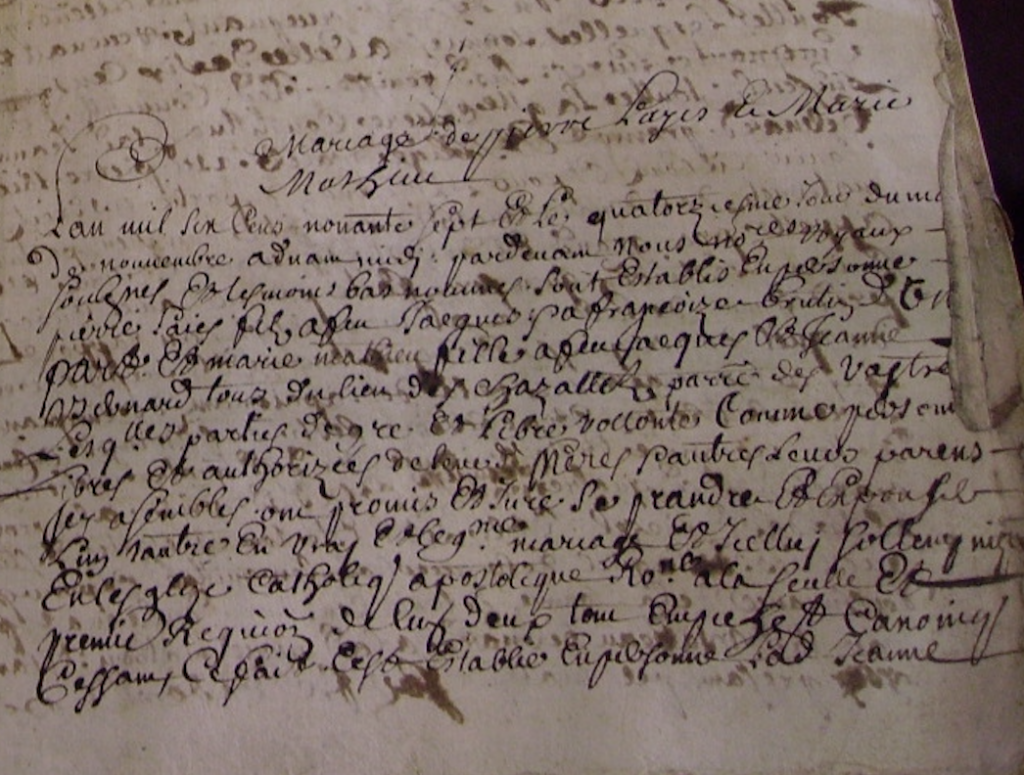 Mariage de pierre Layes Et Marie
Mathieu
Lan mil six Cens nonante sept Et Le quatorziesme Jour du mo
De nouvembre advant midj pardevant nous no.res Royaux
soubnes Et tesmoins bas nommes sont Establis En personne
pierre Laies filz a feu Jaeques Et a françoize d'u
part Et marie mathieu fille a feu jacques Et Jeanne
tous du lieu des Chazalletz parre. des Vastre
Lesq.lles parties de gre Et libre vollonte Comme person
libres Et authorizees de leurs d. Meres Et autres leurs parens
Jcy asembles ont promis Et Jure Se prandre Et Expouser
L'un Lautre En vray Et leg.me mariage Et Jcelluj sollempnizer
En lesglize Catholiq apostolicque Ro.ne a la seulle Et
premie Requi.on de lun deux tout Empeche.t Canoniq
Cessant, Ce fait Cest Establie En personne Lad Jeanne